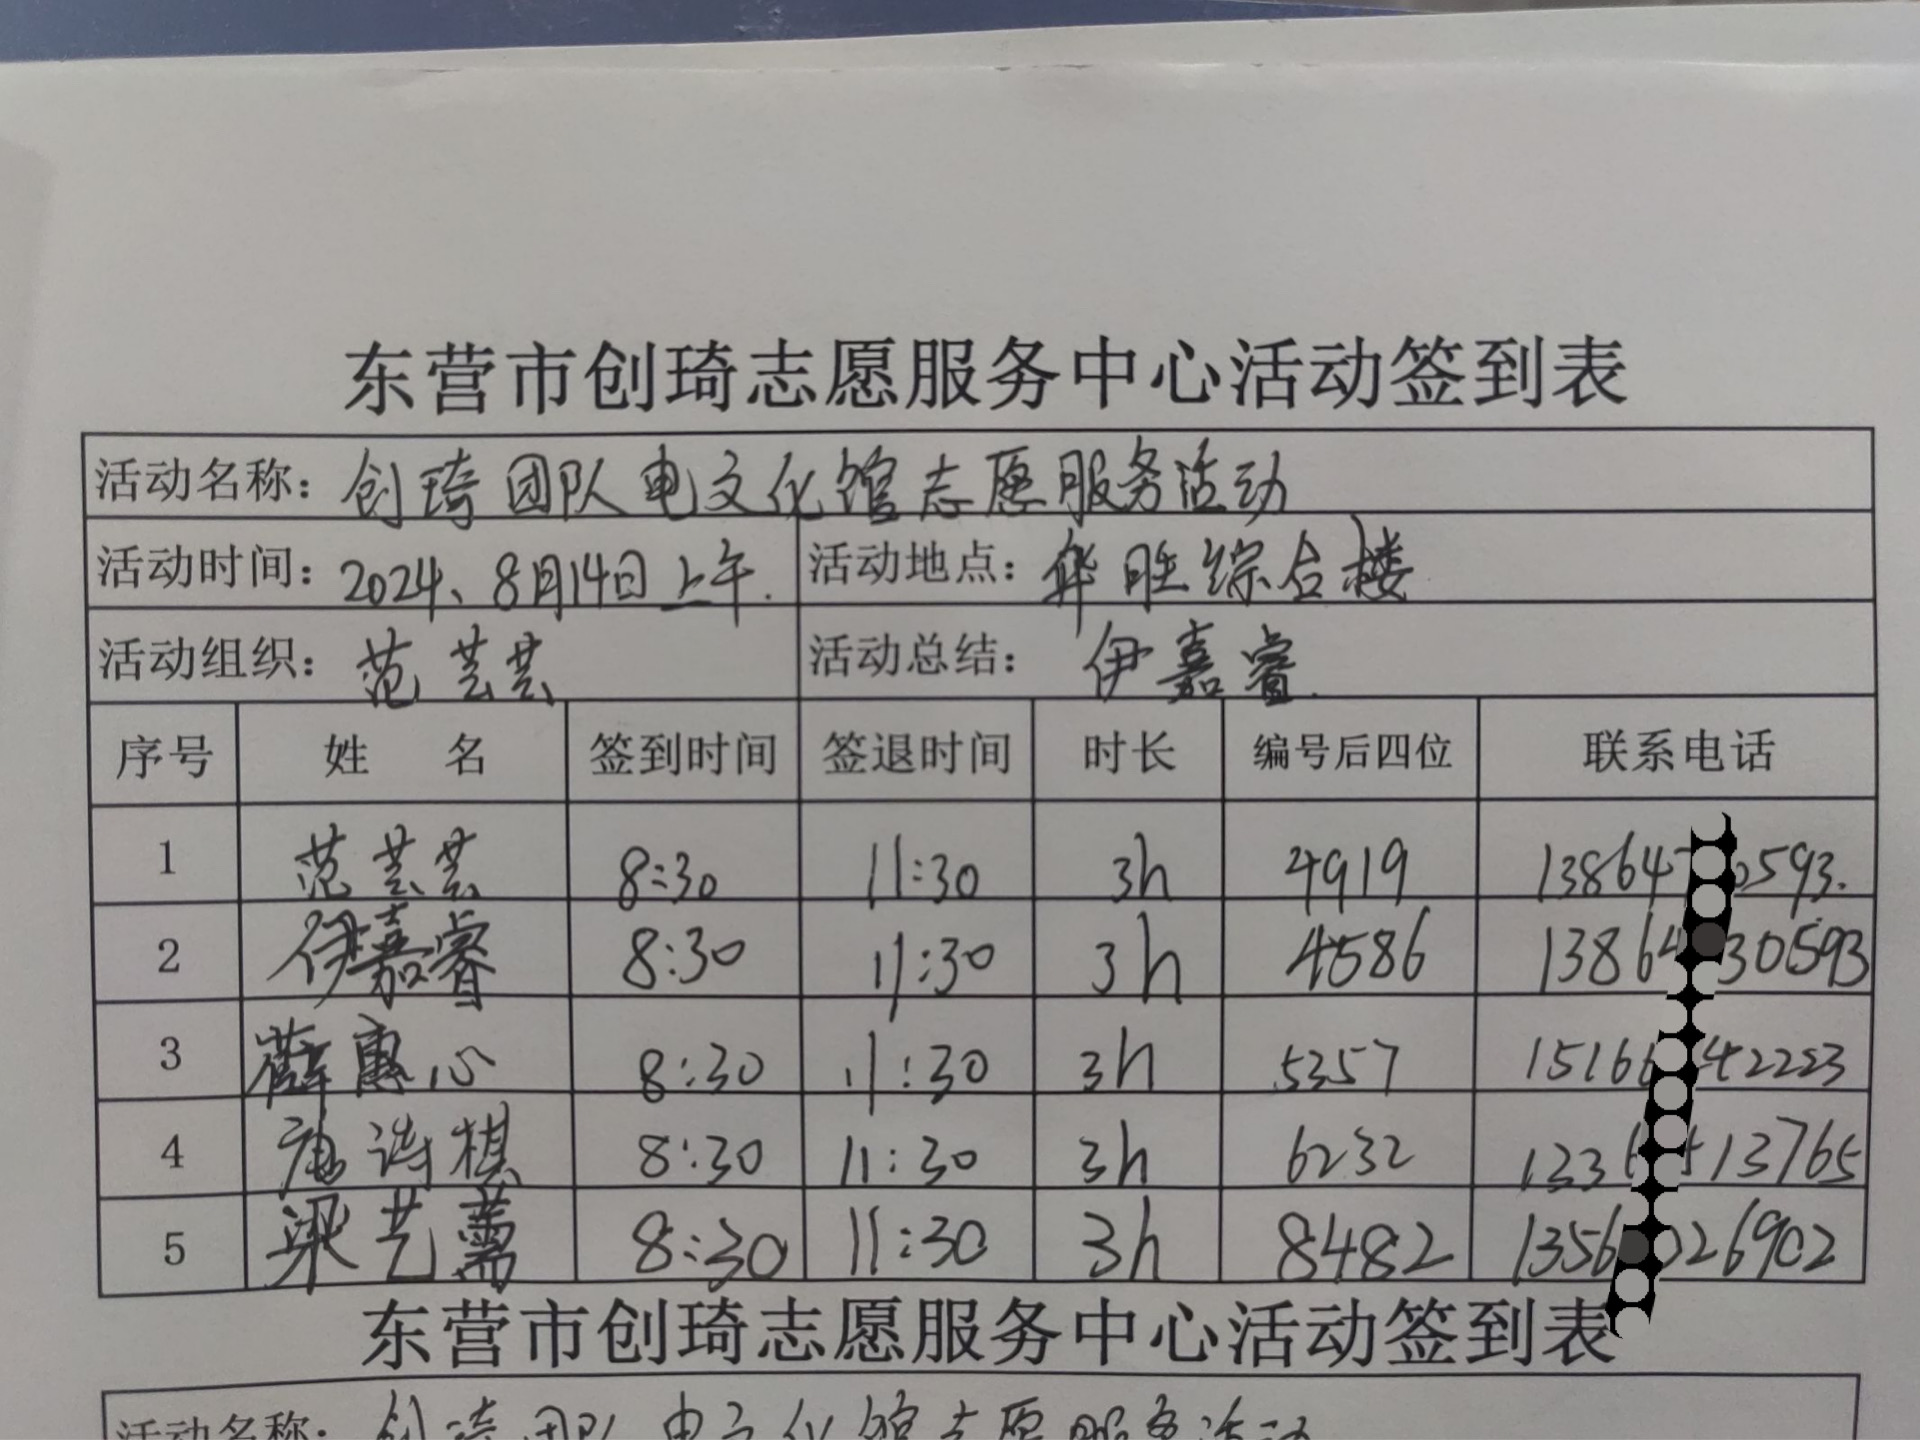 东营市创琦志愿服务中心活动签到表
活动名称：创琦团队电文化馆志愿服务活动
活动时间：2024、8月14日上午. 活动地点：华胜综合楼
活动组织：范芸芸 活动总结：伊嘉睿.
序号 姓 名 签到时间 签退时间 时长 编号后四位 联系电话
1 范芸芸 8:30 11:30 3h 4919 13864 0593.
2 伊嘉睿 8:30 11:30 3h 4586 1386 30593
3 薛惠心 8:30 11:30 3h 5357 1516 42223
4 8:30 11:30 3h 6232 133 13765
5 梁艺 8:30 11:30 3h 8482 1356 026902
东营市创琦志愿服务中心活动签到表
活动名称：创琦团队电文化馆志愿服务活动